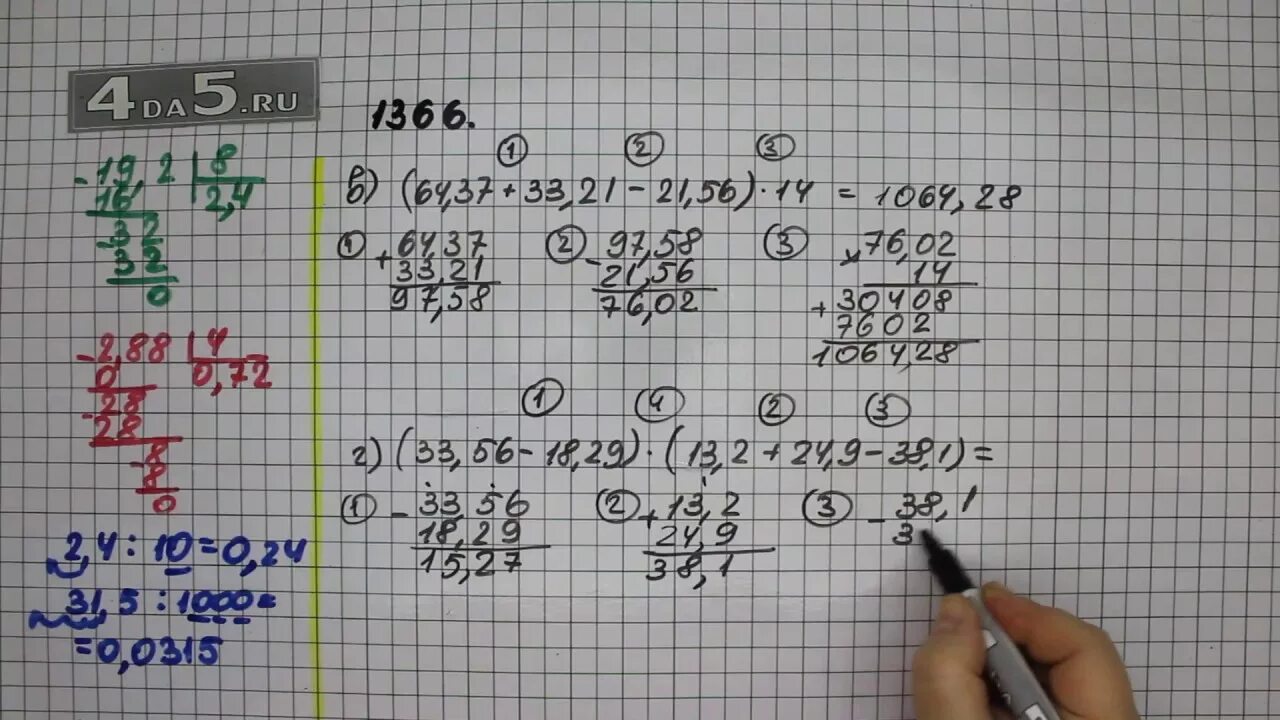 4DA5.RU
1366.
-19,2 | 8
16 | 2,4
-32
32
0
-2,88 | 4
0 | 0,72
-28
28
-8
8
0
2,4 : 10 = 0,24
31,5 : 1000 =
= 0,0315
① ② ③
в) (64,37 + 33,21 - 21,56) · 14 = 1064,28
① + 64,37 ② - 97,58 ③ × 76,02
33,21 21,56 14
97,58 76,02 + 30408
7602
1064,28
① ④ ② ③
г) (33,56 - 18,29) · (13,2 + 24,9 - 38,1) =
① - 33,56 ② + 13,2 ③ - 38,1
18,29 24,9 3
15,27 38,1